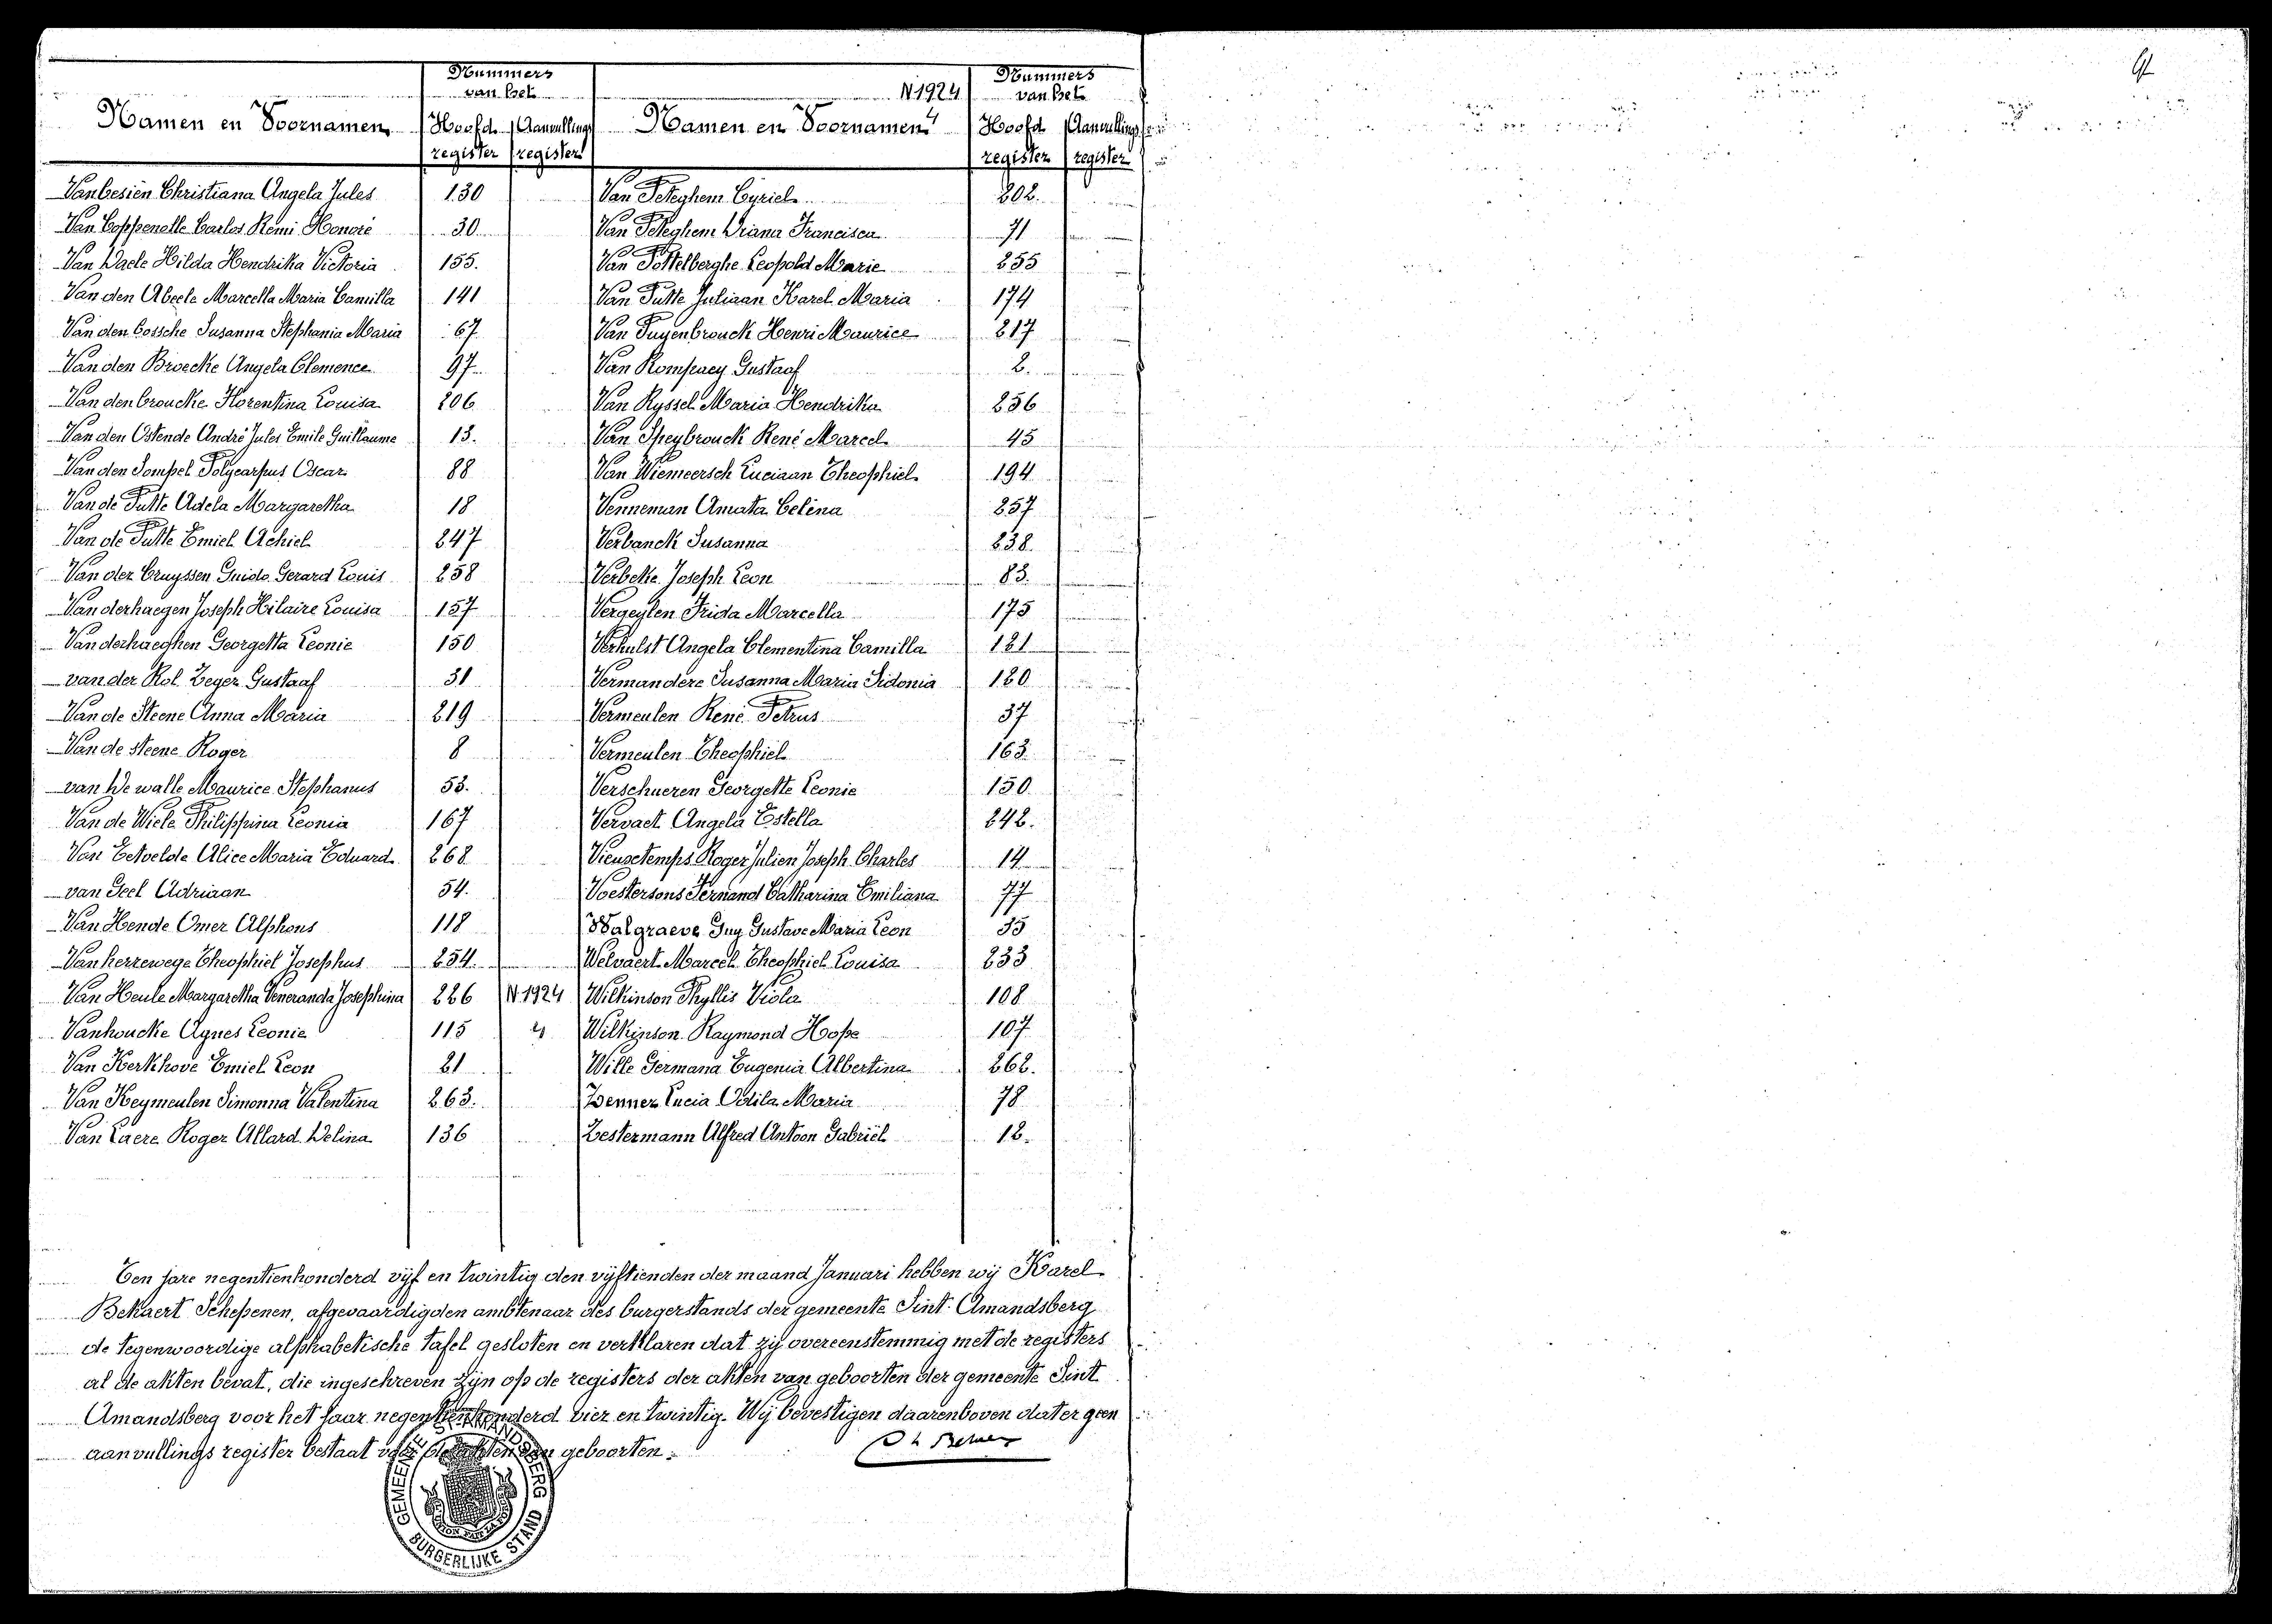 Nummers van het
Namen en Voornamen | Hoofd register | Aanvullings register
Vanbesien Christiana Angela Jules 130
Van Coppenolle Carlos Remi Honoré 30
Van Daele Hilda Hendrika Victoria 155.
Van den Abeele Marcella Maria Camilla 141
Van den bossche Susanna Stephania Maria 67
Van den Broecke Angela Clemence 97
Van den broucke Florentina Louisa 206
Van den Ostende André Jules Emile Guillaume 13.
Van den Sompel Polycarpus Oscar 88
Van de Putte Adela Margaretha 18
Van de Putte Emiel Achiel 247
Van der Cruyssen Guido Gerard Louis 258
Van derhaegen Joseph Hilaire Louisa 157
Van derhaeghen Georgetta Leonie 150
van der Rol Zeger Gustaaf 31
Van de Steene Anna Maria 219
Van de steene Roger 8
van De walle Maurice Stephanus 53.
Van de Wiele Philippina Leonia 167
Van Eetvelde Alice Maria Eduard 268
van Geel Adriaan 54.
Van Hende Omer Alphons 118
Van herzewege Theophiel Josephus 254.
Van Heule Margaretha Veneranda Josephina 226 N 1924
Vanhoucke Agnes Leonie 115 4
Van Kerkhove Emiel Leon 21
Van Keymeulen Simonna Valentina 263.
Van Laere Roger Allard Delina 136
N 1924
4
Nummers van het
Namen en Voornamen | Hoofd register | Aanvullings register
Van Peteghem Cyriel 202.
Van Peteghem Diana Francisca 71
Van Pottelberghe Leopold Marie 255
Van Putte Juliaan Karel Maria 174
Van Puyenbrouck Henri Maurice 217
Van Rompaey Gustaaf 2.
Van Ryssel Maria Hendrika 256
Van Speybrouck René Marcel 45
Van Wiemeersch Luciaan Theophiel 194
Venneman Amata Celina 257
Verbanck Susanna 238.
Verbeke Joseph Leon 83.
Vergeylen Frida Marcella 175
Verhulst Angela Clementina Camilla 121
Vermandere Susanna Maria Sidonia 120
Vermeulen René Petrus 37
Vermeulen Theophiel 163.
Verschueren Georgette Leonie 150
Vervaet Angela Estella 242.
Vieuxtemps Roger Julien Joseph Charles 14
Voestersons Fernand Catharina Emiliana 77
Walgraeve Guy Gustave Maria Leon 35
Welvaert Marcel Theophiel Louisa 233
Wilkinson Phyllis Viola 108
Wilkinson Raymond Hope 107
Wille Germana Eugenia Albertina 262.
Zenner Lucia Odila Maria 78
Zestermann Alfred Antoon Gabriël 12.
Ten jare negentienhonderd vijf en twintig den vijftienden der maand Januari hebben wij Karel
Bekaert Schepenen, afgevaardigden ambtenaar des burgerstands der gemeente Sint-Amandsberg
de tegenwoordige alphabetische tafel gesloten en verklaren dat zij overeenstemmig met de registers
al de akten bevat, die ingeschreven zijn op de registers der akten van geboorten der gemeente Sint
Amandsberg voor het jaar negentienhonderd vier en twintig. Wij bevestigen daarenboven dat er geen
aanvullings register bestaat voor de akten van geboorten.
GEMEENTE ST AMANDSBERG
L'UNION FAIT LA FORCE
BURGERLIJKE STAND